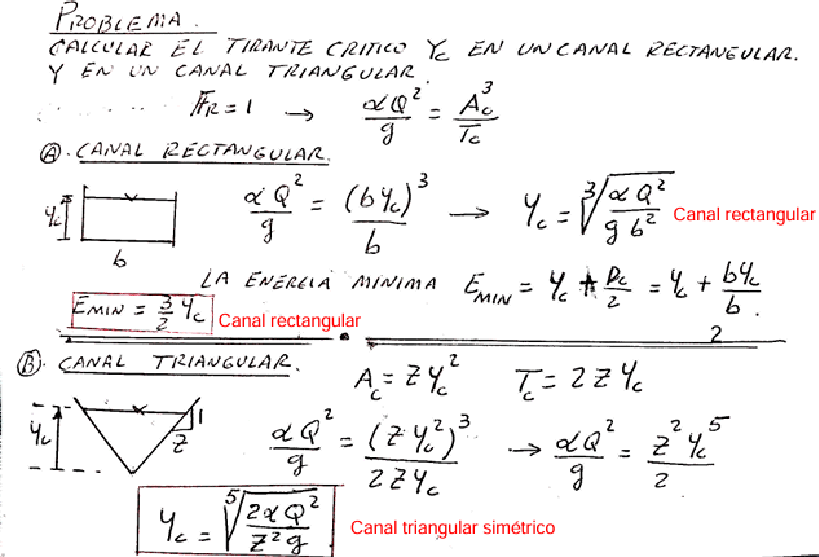 PROBLEMA.
CALCULAR EL TIRANTE CRITICO Yc EN UN CANAL RECTANGULAR.
Y EN UN CANAL TRIANGULAR.
FR = 1 → αQ²/g = Ac³/Tc
Ⓐ. CANAL RECTANGULAR.
Yc b αQ²/g = (bYc)³/b → Yc = ∛(αQ²/gb²) Canal rectangular
LA ENERGIA MINIMA EMIN = Yc + Dc/2 = Yc + (bYc/b)/2
EMIN = 3/2 Yc Canal rectangular
Ⓑ. CANAL TRIANGULAR. Ac = ZYc² Tc = 2ZYc
Yc 1 Z αQ²/g = (ZYc²)³/2ZYc → αQ²/g = Z²Yc⁵/2
Yc = ⁵√(2αQ²/Z²g) Canal triangular simétrico